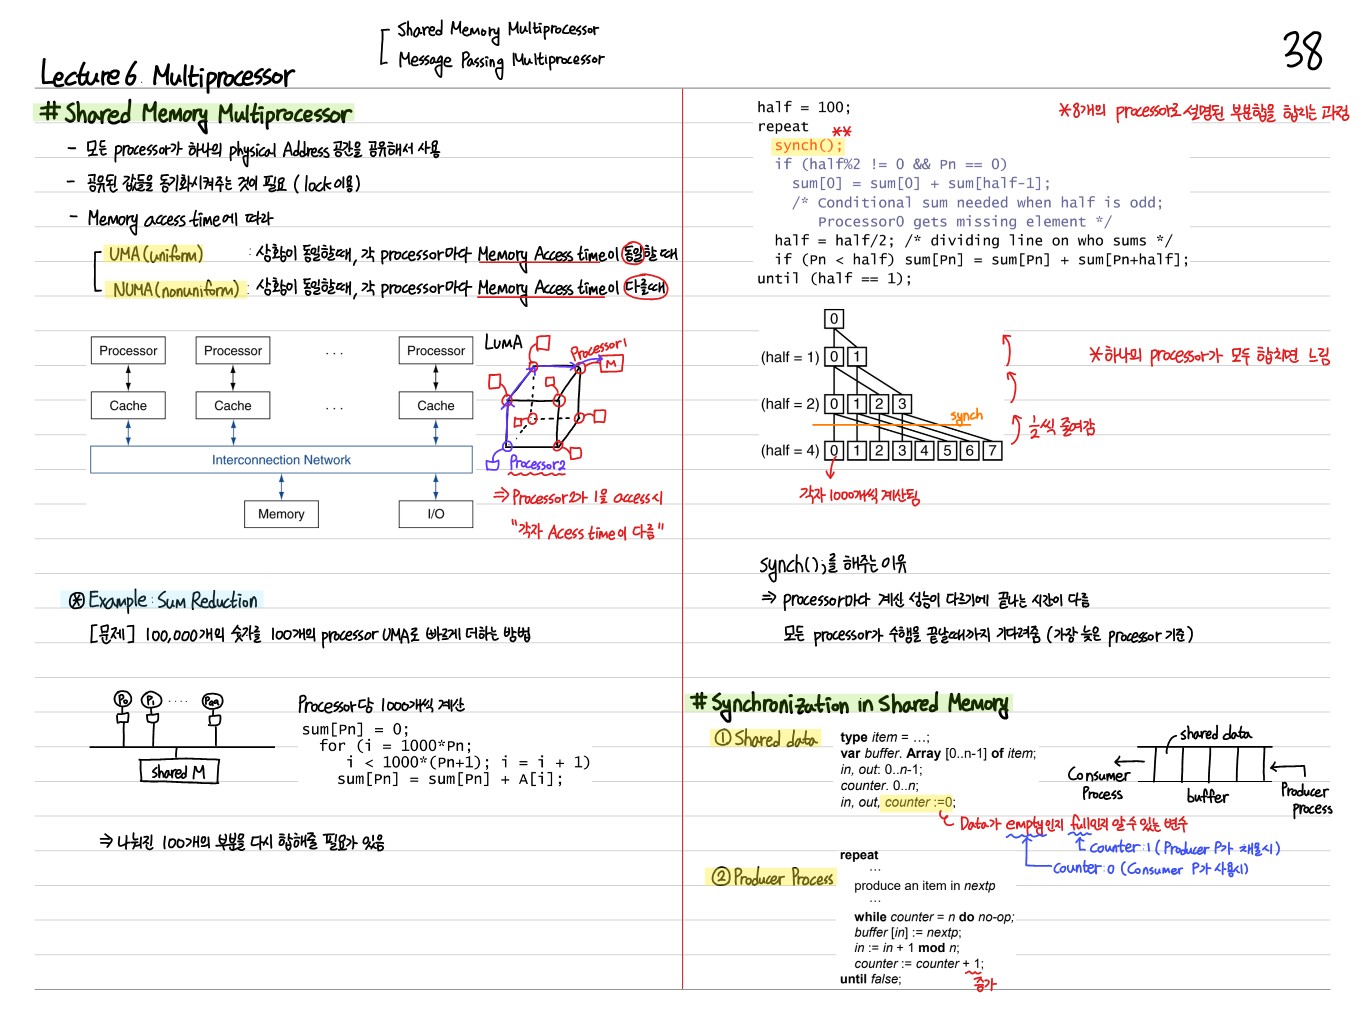 Shared Memory Multiprocessor
Message Passing Multiprocessor
38
Lecture 6. Multiprocessor
# Shared Memory Multiprocessor
- 모든 processor가 하나의 physical Address 공간을 공유해서 사용
- 공유된 값들을 동기화시켜주는 것이 필요 (lock 이용)
- Memory access time에 따라
UMA (uniform) : 상황이 동일할때, 각 processor마다 Memory Access time이 동일할 때
NUMA (nonuniform) : 상황이 동일할때, 각 processor마다 Memory Access time이 다를때
Processor Processor ... Processor
Cache Cache ... Cache
Interconnection Network
Memory I/O
LUMA
Processor1
M
Processor2
⇒ Processor2가 1을 access시
"각자 Acess time이 다름"
⊛ Example : Sum Reduction
[문제] 100,000개의 숫자를 100개의 processor UMA로 빠르게 더하는 방법
P0 P1 .... P99
shared M
Processor당 1000개씩 계산
sum[Pn] = 0;
for (i = 1000*Pn;
i < 1000*(Pn+1); i = i + 1)
sum[Pn] = sum[Pn] + A[i];
⇒ 나눠진 100개의 부분을 다시 합해줄 필요가 있음
half = 100;
*8개의 processor로 설명된 부분합을 합치는 과정
repeat
**
synch();
if (half%2 != 0 && Pn == 0)
sum[0] = sum[0] + sum[half-1];
/* Conditional sum needed when half is odd;
Processor0 gets missing element */
half = half/2; /* dividing line on who sums */
if (Pn < half) sum[Pn] = sum[Pn] + sum[Pn+half];
until (half == 1);
0
(half = 1) 0 1
*하나의 processor가 모두 합치면 느림
(half = 2) 0 1 2 3
synch
1/2씩 줄여감
(half = 4) 0 1 2 3 4 5 6 7
각자 1000개씩 계산됨
synch();를 해주는 이유
⇒ processor마다 계산 성능이 다르기에 끝나는 시간이 다름
모든 processor가 수행을 끝날때까지 기다려줌 (가장 늦은 processor 기준)
# Synchronization in Shared Memory
① Shared data
type item = …;
var buffer. Array [0..n-1] of item;
in, out: 0..n-1;
counter. 0..n;
in, out, counter :=0;
shared data
Consumer Process
buffer
Producer process
Data가 empty인지 full인지 알 수 있는 변수
counter:1 (Producer P가 채울시)
counter:0 (Consumer P가 사용시)
② Producer Process
repeat
…
produce an item in nextp
…
while counter = n do no-op;
buffer [in] := nextp;
in := in + 1 mod n;
counter := counter + 1;
until false;
증가